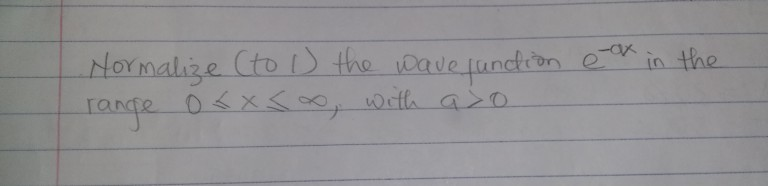 Normalize (to 1) the wavefunction e^-ax in the
range 0 ≤ x ≤ ∞, with a>0